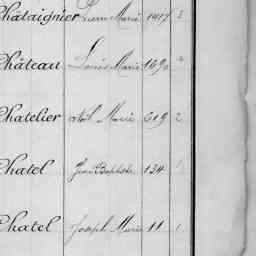 Châtaignier Pierre Marie 1417 3
Château Louis Marie 1690
Chatelier Noël Marie 619 2
Chatel Jean Baptiste 134 1
Chatel Joseph Marie 11 1